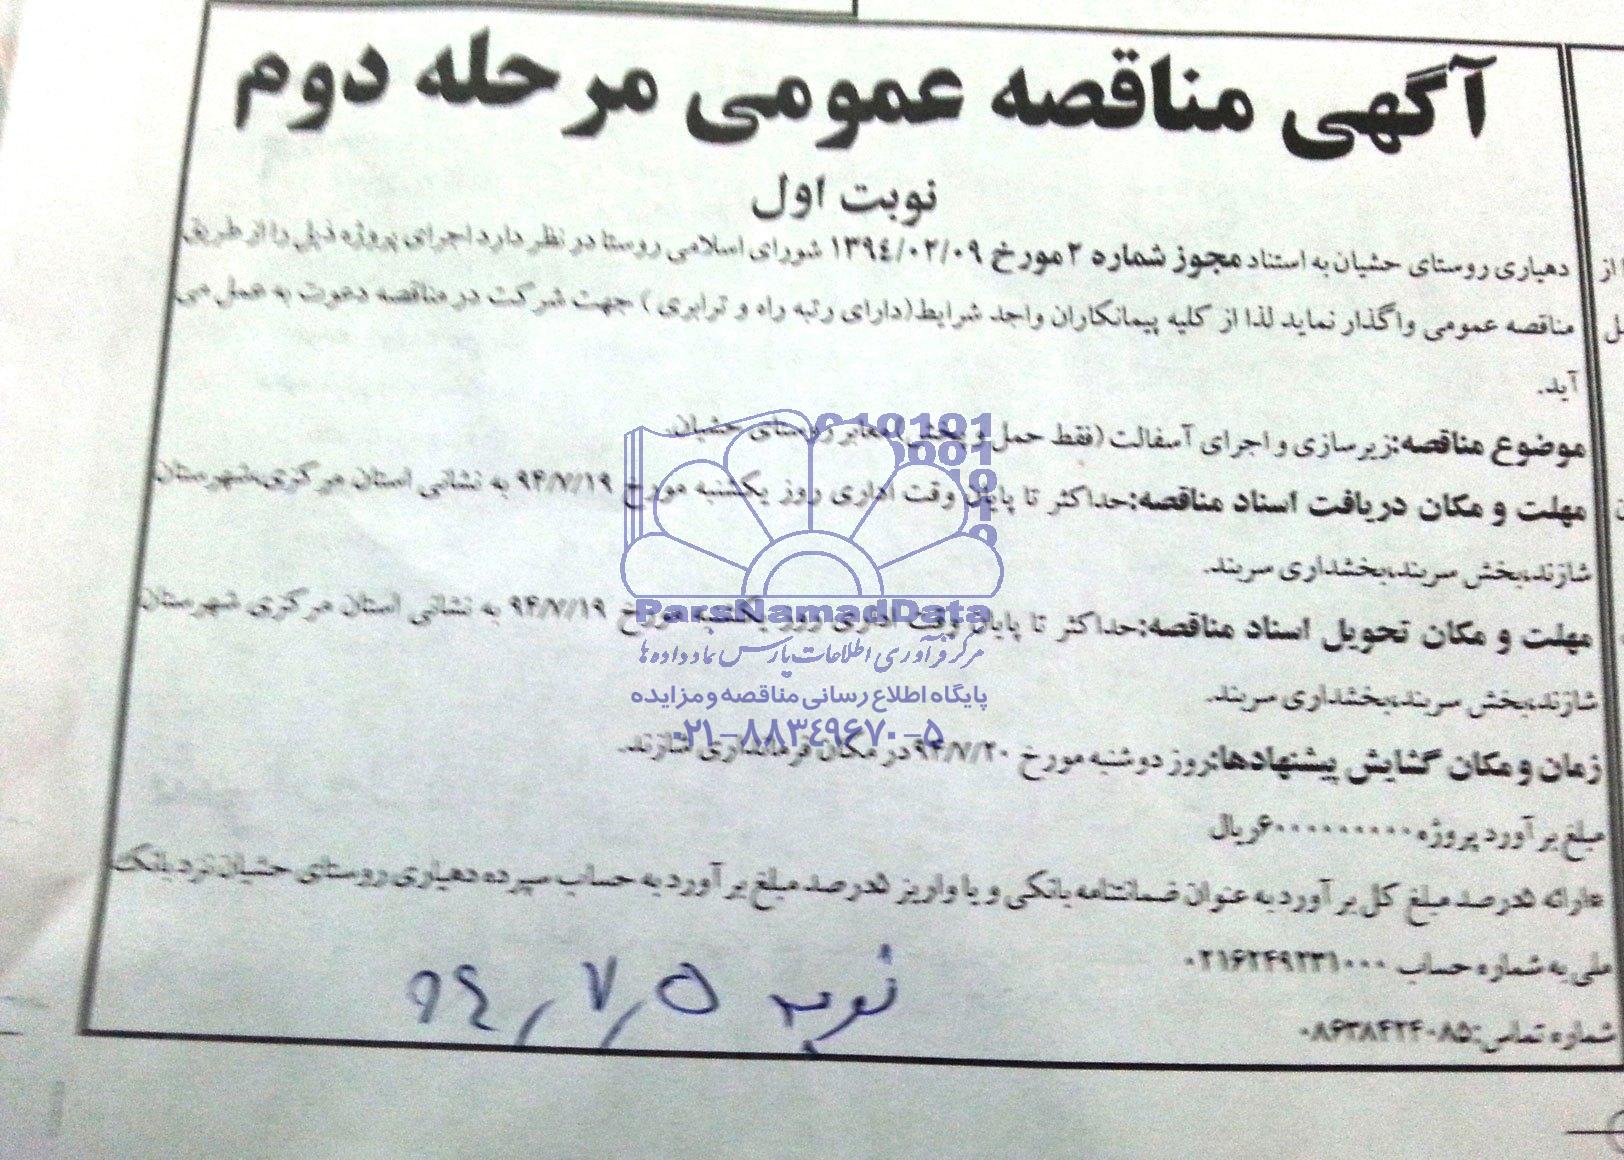 آگهی مناقصه عمومی مرحله دوم
نوبت اول
دهیاری روستای حشیان به استناد مجوز شماره ۲ مورخ ۱۳۹٤/۰۲/۰۹ شورای اسلامی روستا در نظر دارد اجرای پروژه ذیل را از طریق
مناقصه عمومی واگذار نماید لذا از کلیه پیمانکاران واجد شرایط (دارای رتبه راه و ترابری) جهت شرکت در مناقصه دعوت به عمل می
آید.
موضوع مناقصه: زیرسازی و اجرای آسفالت (فقط حمل و پخش) معابر روستای حشیان.
مهلت و مکان دریافت اسناد مناقصه: حداکثر تا پایان وقت اداری روز یکشنبه مورخ ۹۴/۷/۱۹ به نشانی استان مرکزی،شهرستان
شازند،بخش سربند،بخشداری سربند.
مهلت و مکان تحویل اسناد مناقصه: حداکثر تا پایان وقت اداری روز یکشنبه مورخ ۹۴/۷/۱۹ به نشانی استان مرکزی شهرستان
شازند،بخش سربند،بخشداری سربند.
زمان و مکان گشایش پیشنهادها: روز دوشنبه مورخ ۹۴/۷/۲۰ در مکان فرمانداری شازند.
مبلغ برآورد پروژه ریال
*ارائه ۵درصد مبلغ کل برآورد به عنوان ضمانتنامه بانکی و یا واریز ۵درصد مبلغ برآورد به حساب سپرده دهیاری روستای حشیان نزد بانک
ملی به شماره حساب ۰۲۱۶۲۴۹۲۳۱۰۰۰
شماره تماس: ۰۸۶۳۸۴۲۴۰۸۵
نوبه ۹٤/۷/۵
ParsNamadData
مرکز فرآوری اطلاعات پارس نماد داده ها
پایگاه اطلاع رسانی مناقصه و مزایده
۰۲۱-۸۸۳٤۹٦۷۰-۵